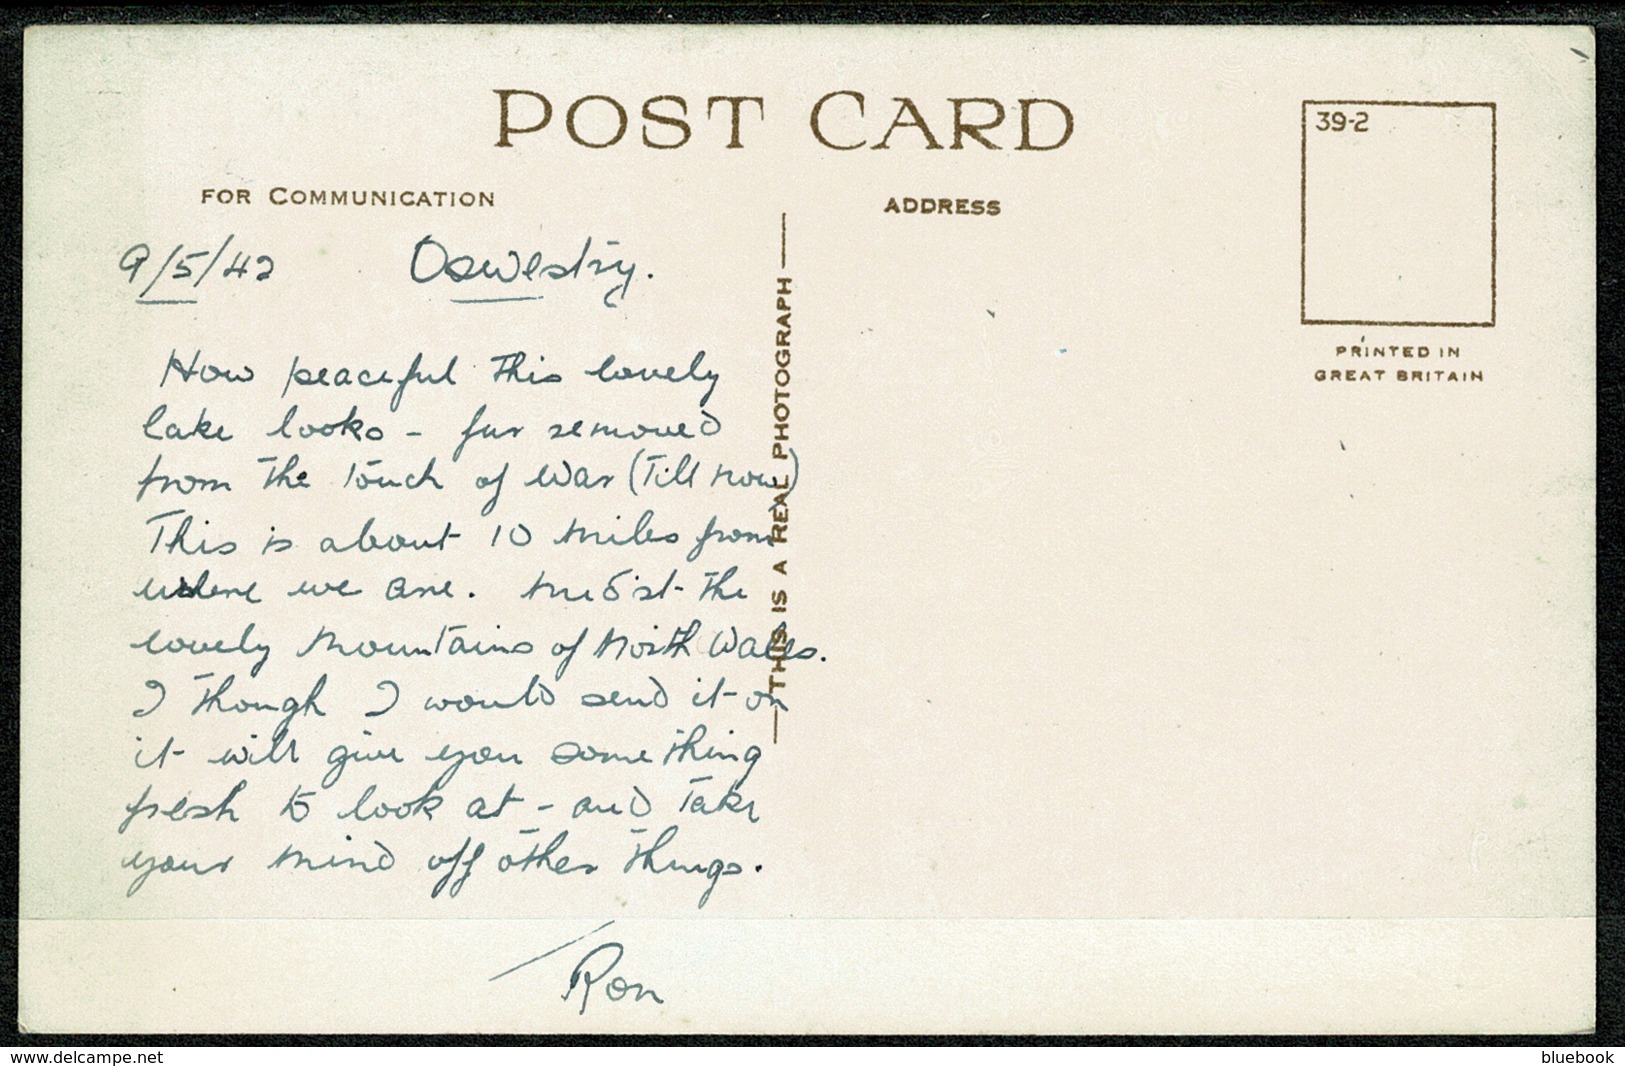 POST CARD
39-2
FOR COMMUNICATION
ADDRESS
PRINTED IN
GREAT BRITAIN
9/5/42 Oswestry.
How peaceful this lovely
lake looks - far removed
from the touch of war (till now)
This is about 10 miles from
where we are. Midst the
lovely mountains of North Wales.
I though I would send it on
it will give you something
fresh to look at - and take
your mind off other things.
Ron
THIS IS A REAL PHOTOGRAPH
www.delcampe.net
bluebook